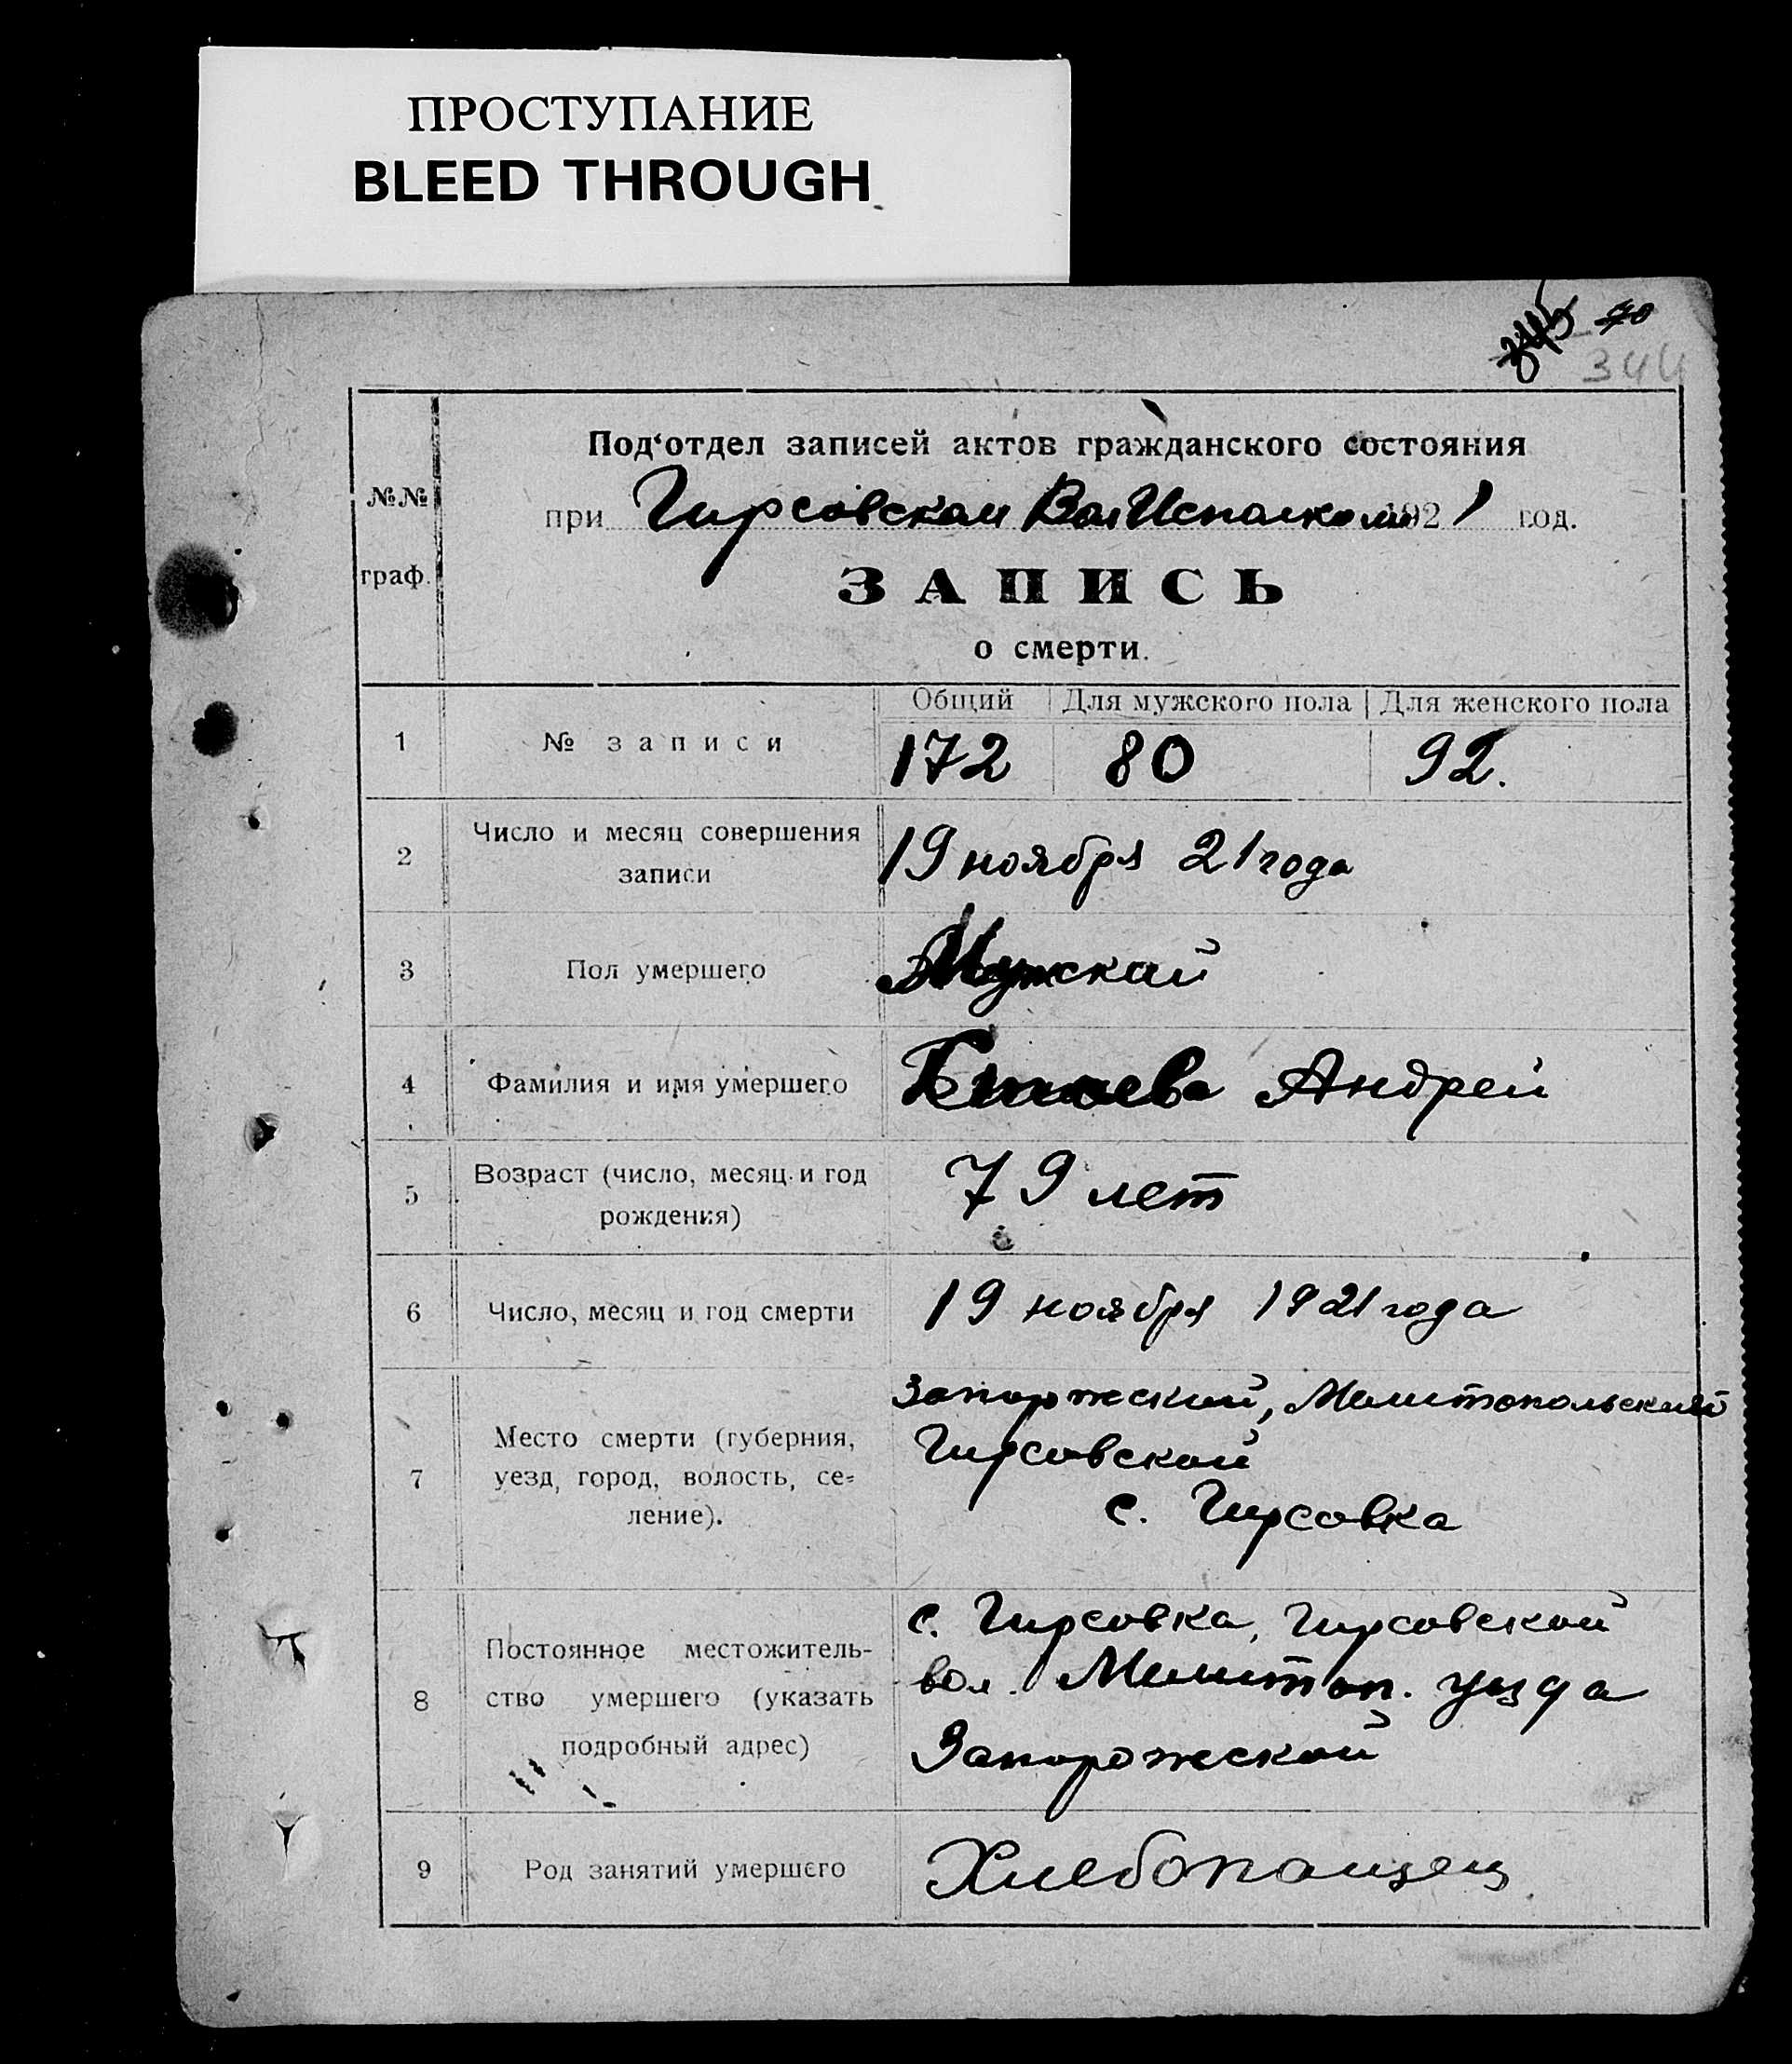 ПРОСТУПАНИЕ
BLEED THROUGH
345 70
344
Под‘отдел записей актов гражданского состояния
№№ граф.
при Гирсовском ВолИсполкоме 1921 год.
ЗАПИСЬ
о смерти.
Общий Для мужского пола Для женского пола
1 № записи 172 80 92.
2 Число и месяц совершения
записи
19 ноября 21 года
3 Пол умершего Мужской
4 Фамилия и имя умершего Андрей
5 Возраст (число, месяц и год
рождения)
79 лет
6 Число, месяц и год смерти 19 ноября 1921 года
7 Место смерти (губерния,
уезд, город, волость, се-
ление).
Запорожский, Мелитопольский
Гирсовской
с. Гирсовка
8 Постоянное местожитель-
ство умершего (указать
подробный адрес)
с. Гирсовка, Гирсовской
вол. Мелитоп. уезда
Запорожской
9 Род занятий умершего Хлебопашец